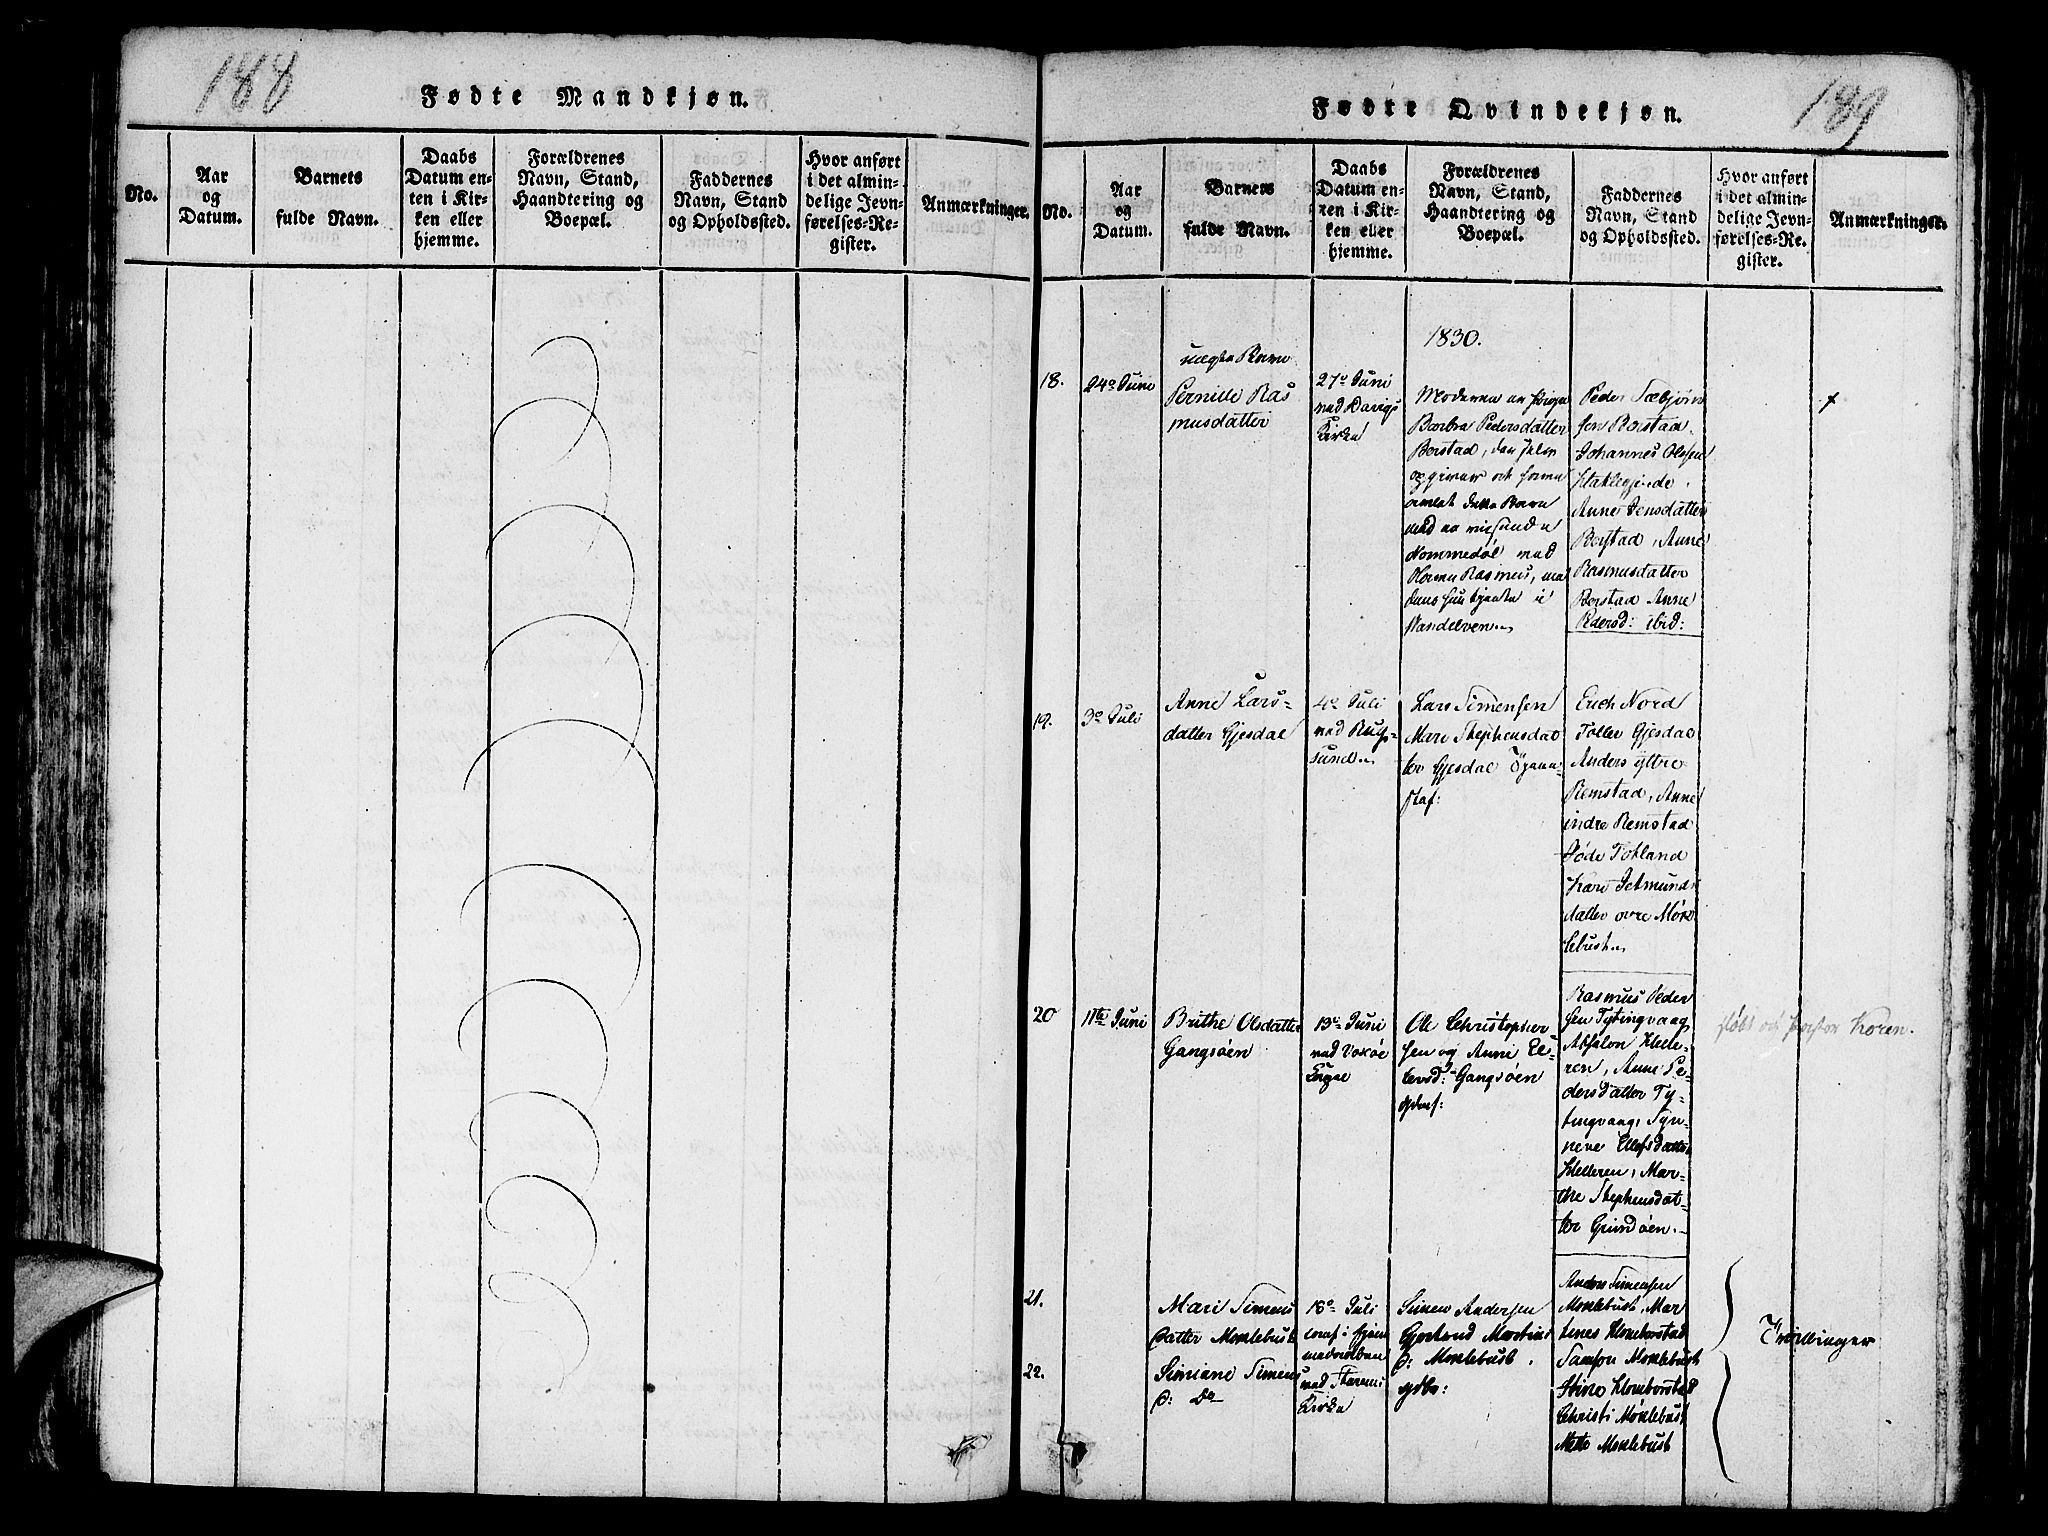 188
Fødte Mandkjøn.
No.
Aar
og
Datum.
Barnets
fulde Navn.
Daabs
Datum en-
ten i Kir-
ken eller
hjemme.
Forældrenes
Navn, Stand,
Haandtering og
Boepæl.
Faddernes
Navn, Stand
og Opholdssted.
Hvor anført
i det almin-
delige Jevn-
førelses-Re-
gister.
Anmærkninger.
189
Fødte Qvindekjøn.
No.
Aar
og
Datum.
Barnets
fulde Navn.
Daabs
Datum en-
ten i Kir-
ken eller
hjemme.
Forældrenes
Navn, Stand,
Haandtering og
Boepæl.
Faddernes
Navn, Stand
og Opholdssted.
Hvor anført
i det almin-
delige Jevn-
førelses-Re-
gister.
Anmærkninger.
1830.
18.
24de Juni
uægte Barn
Pernille Ras
musdatter
27de Juni
ved Davigs
Kirke
Moderen
Barbra Pedersdatter
Berstad, den
opgiver
dette Barn
Nommedal med
Rasmus,
i
Vandelven
Peder Sæbjørn
sen Berstad
Johannes Olssen
Hatlegjerde
Anne Jensdatter
Berstad, Anne
Rasmusdatter
Berstad Anne
Pedersd: ibid:
+
19.
3de Juli
Anne Lars-
datter Gjesdal
4de Juli
ved Rugs-
sund
Lars Simensen
Mari Stephensdat
ter Gjesdal
Erich Nord
Toller Gjesdal
Anders Yttre
Remstad, Anne
indre Remstad
Totland
Kari Setmunds
datter øvre Møk
lebust
20
11te Juni
Brithe Olsdatter
Gangsøen
13de Juni
ved Voxøe
Ole Christopher
sen og Anne El-
levsd: Gangsøen
Rasmus Peder
sen Tytingvaag
Absalon Helle-
ren, Anne Pe-
dersdatter Ty-
tingvaag, Syn-
neve Ellefsdatter
Helleren, Mar-
the Stephensdat-
ter Grundøen.
døbt af Pastor Koren.
21.
Mari Simens
datter Møklebust
18de Juli
conf: hjem
medøbt
ved
Kirke
Simen Andersen
Gjertrud Martins
d: Møklebust.
Anders Simensen
Møklebust, Mar
thines Homborstad
Samson Møklebust
Stine Homborstad
Christi Møklebust
Mette Møklebust
22.
Simiane Simens
d: Do
Tvillinger